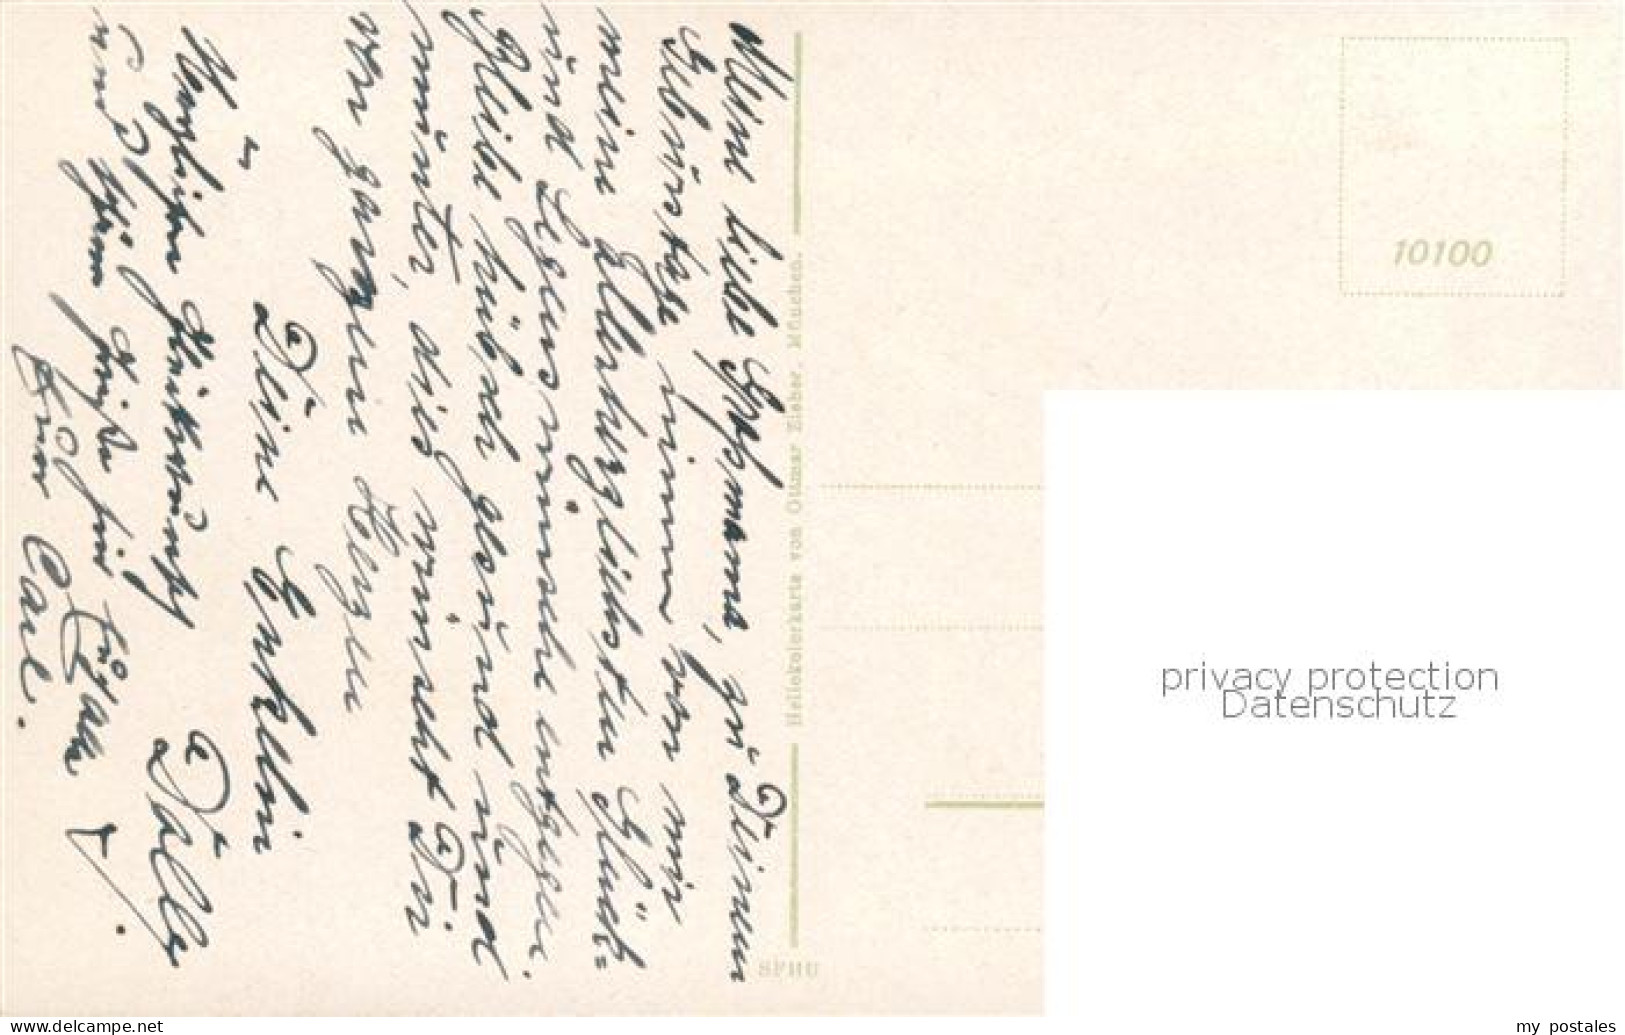 Meine liebe Großmama, zu Deinem
Geburtstage nimm von mir
meine allerherzlichsten Glück=
und Segenswünsche entgegen.
Bleibe hübsch gesund und
munter, dies wünscht Dir
von ganzem Herzen
Deine Enkelin
Dolly
Herzlichen Glückwunsch
und Grüße für
Euer Carl.
Hellokolorkarte von Ottmar Zieher, München.
SFHU
10100
privacy protection
Datenschutz
my_postales
www.delcampe.net